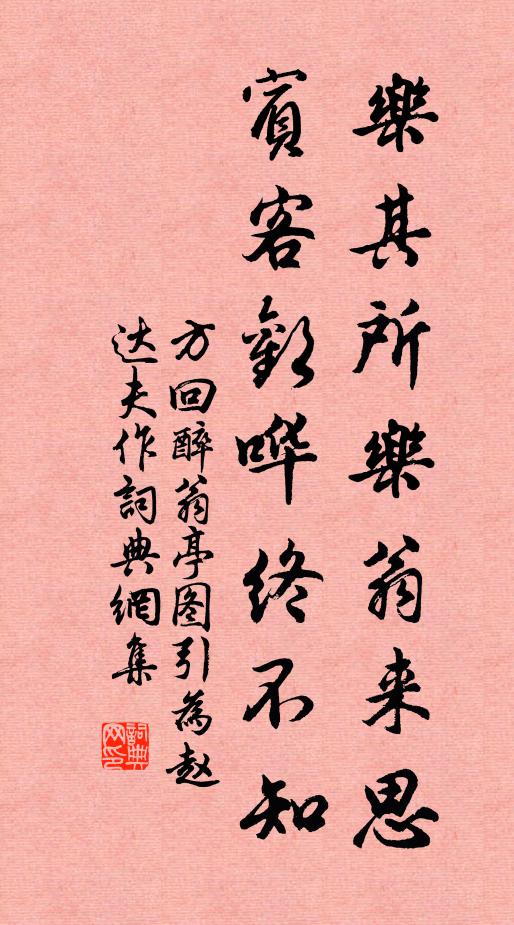 樂其所樂翁来思
賓客歡哗终不知
方回醉翁亭图引為赵
达夫作詞典網集
詞典网印